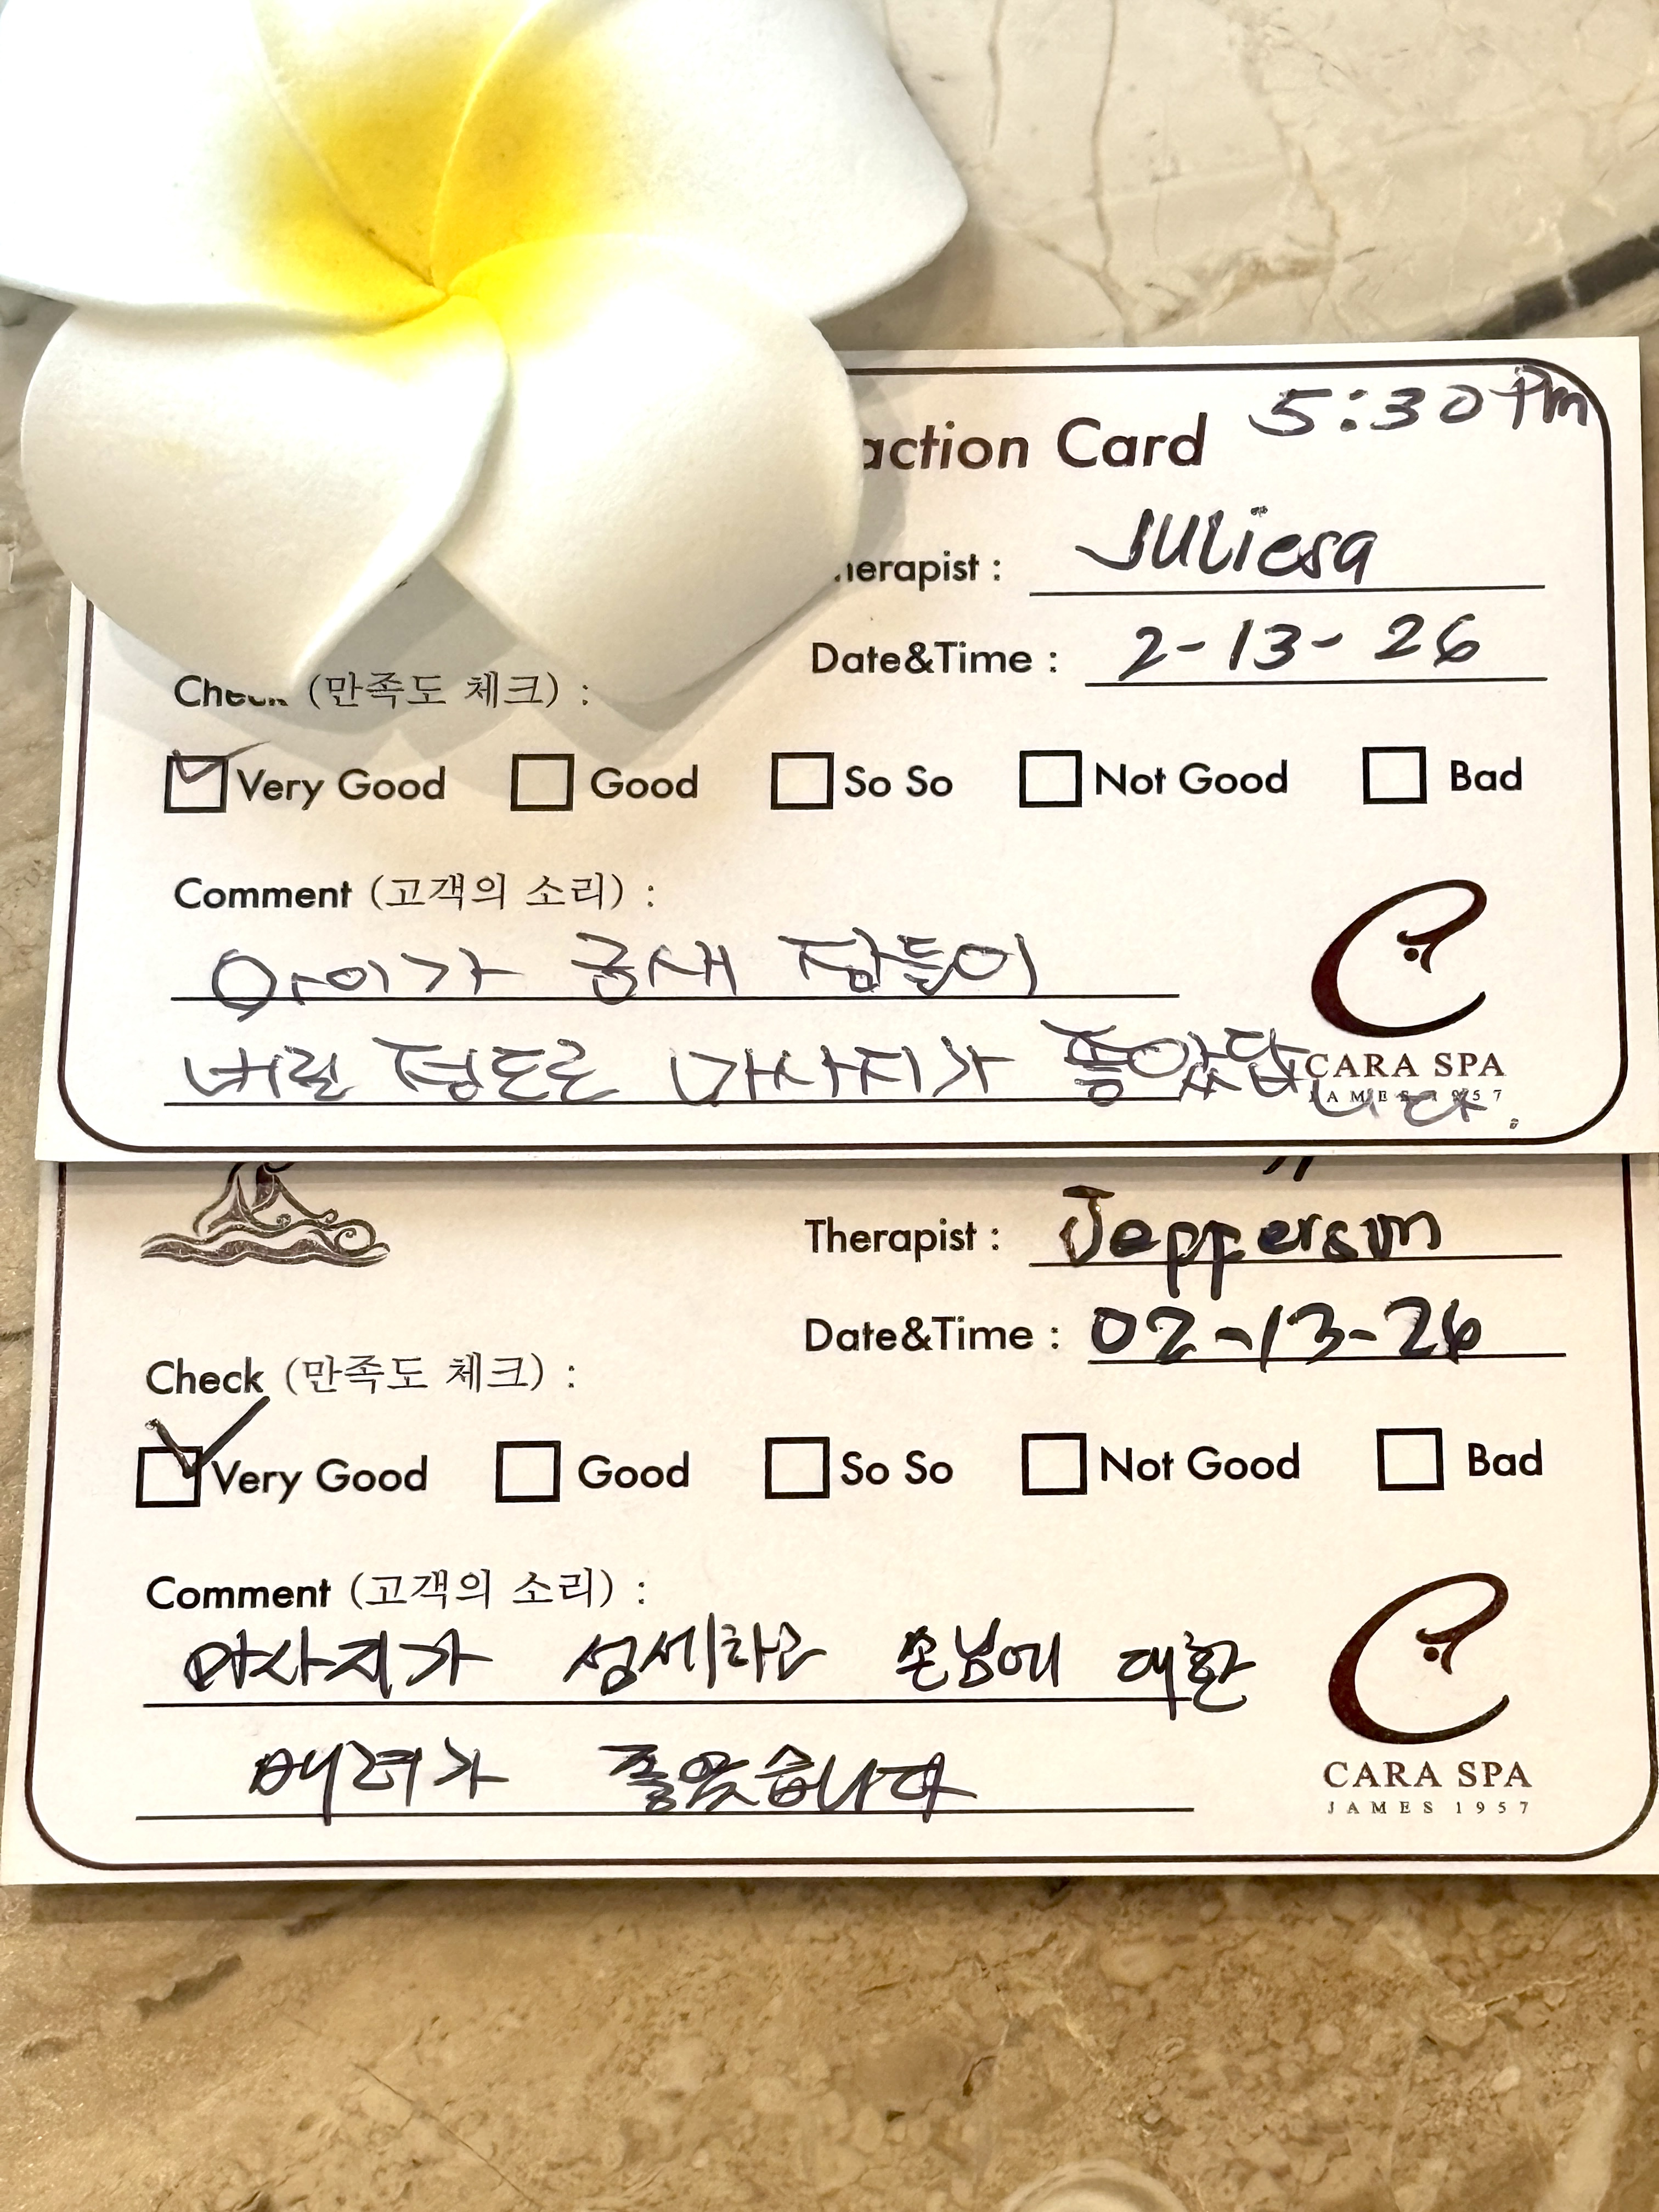 5:30 Pm
action Card
herapist : Juliesa
Date&Time : 2-13-26
Check (만족도 체크) :
Very Good Good So So Not Good Bad
Comment (고객의 소리) :
아이가 금새 잠들어
버릴 정도로 마사지가 좋았답니다.
CARA SPA
JAMES 1957
Therapist : Jepperson
Date&Time : 02-13-26
Check (만족도 체크) :
Very Good Good So So Not Good Bad
Comment (고객의 소리) :
마사지가 섬세하고 손님에 대한
배려가 좋았습니다
CARA SPA
JAMES 1957